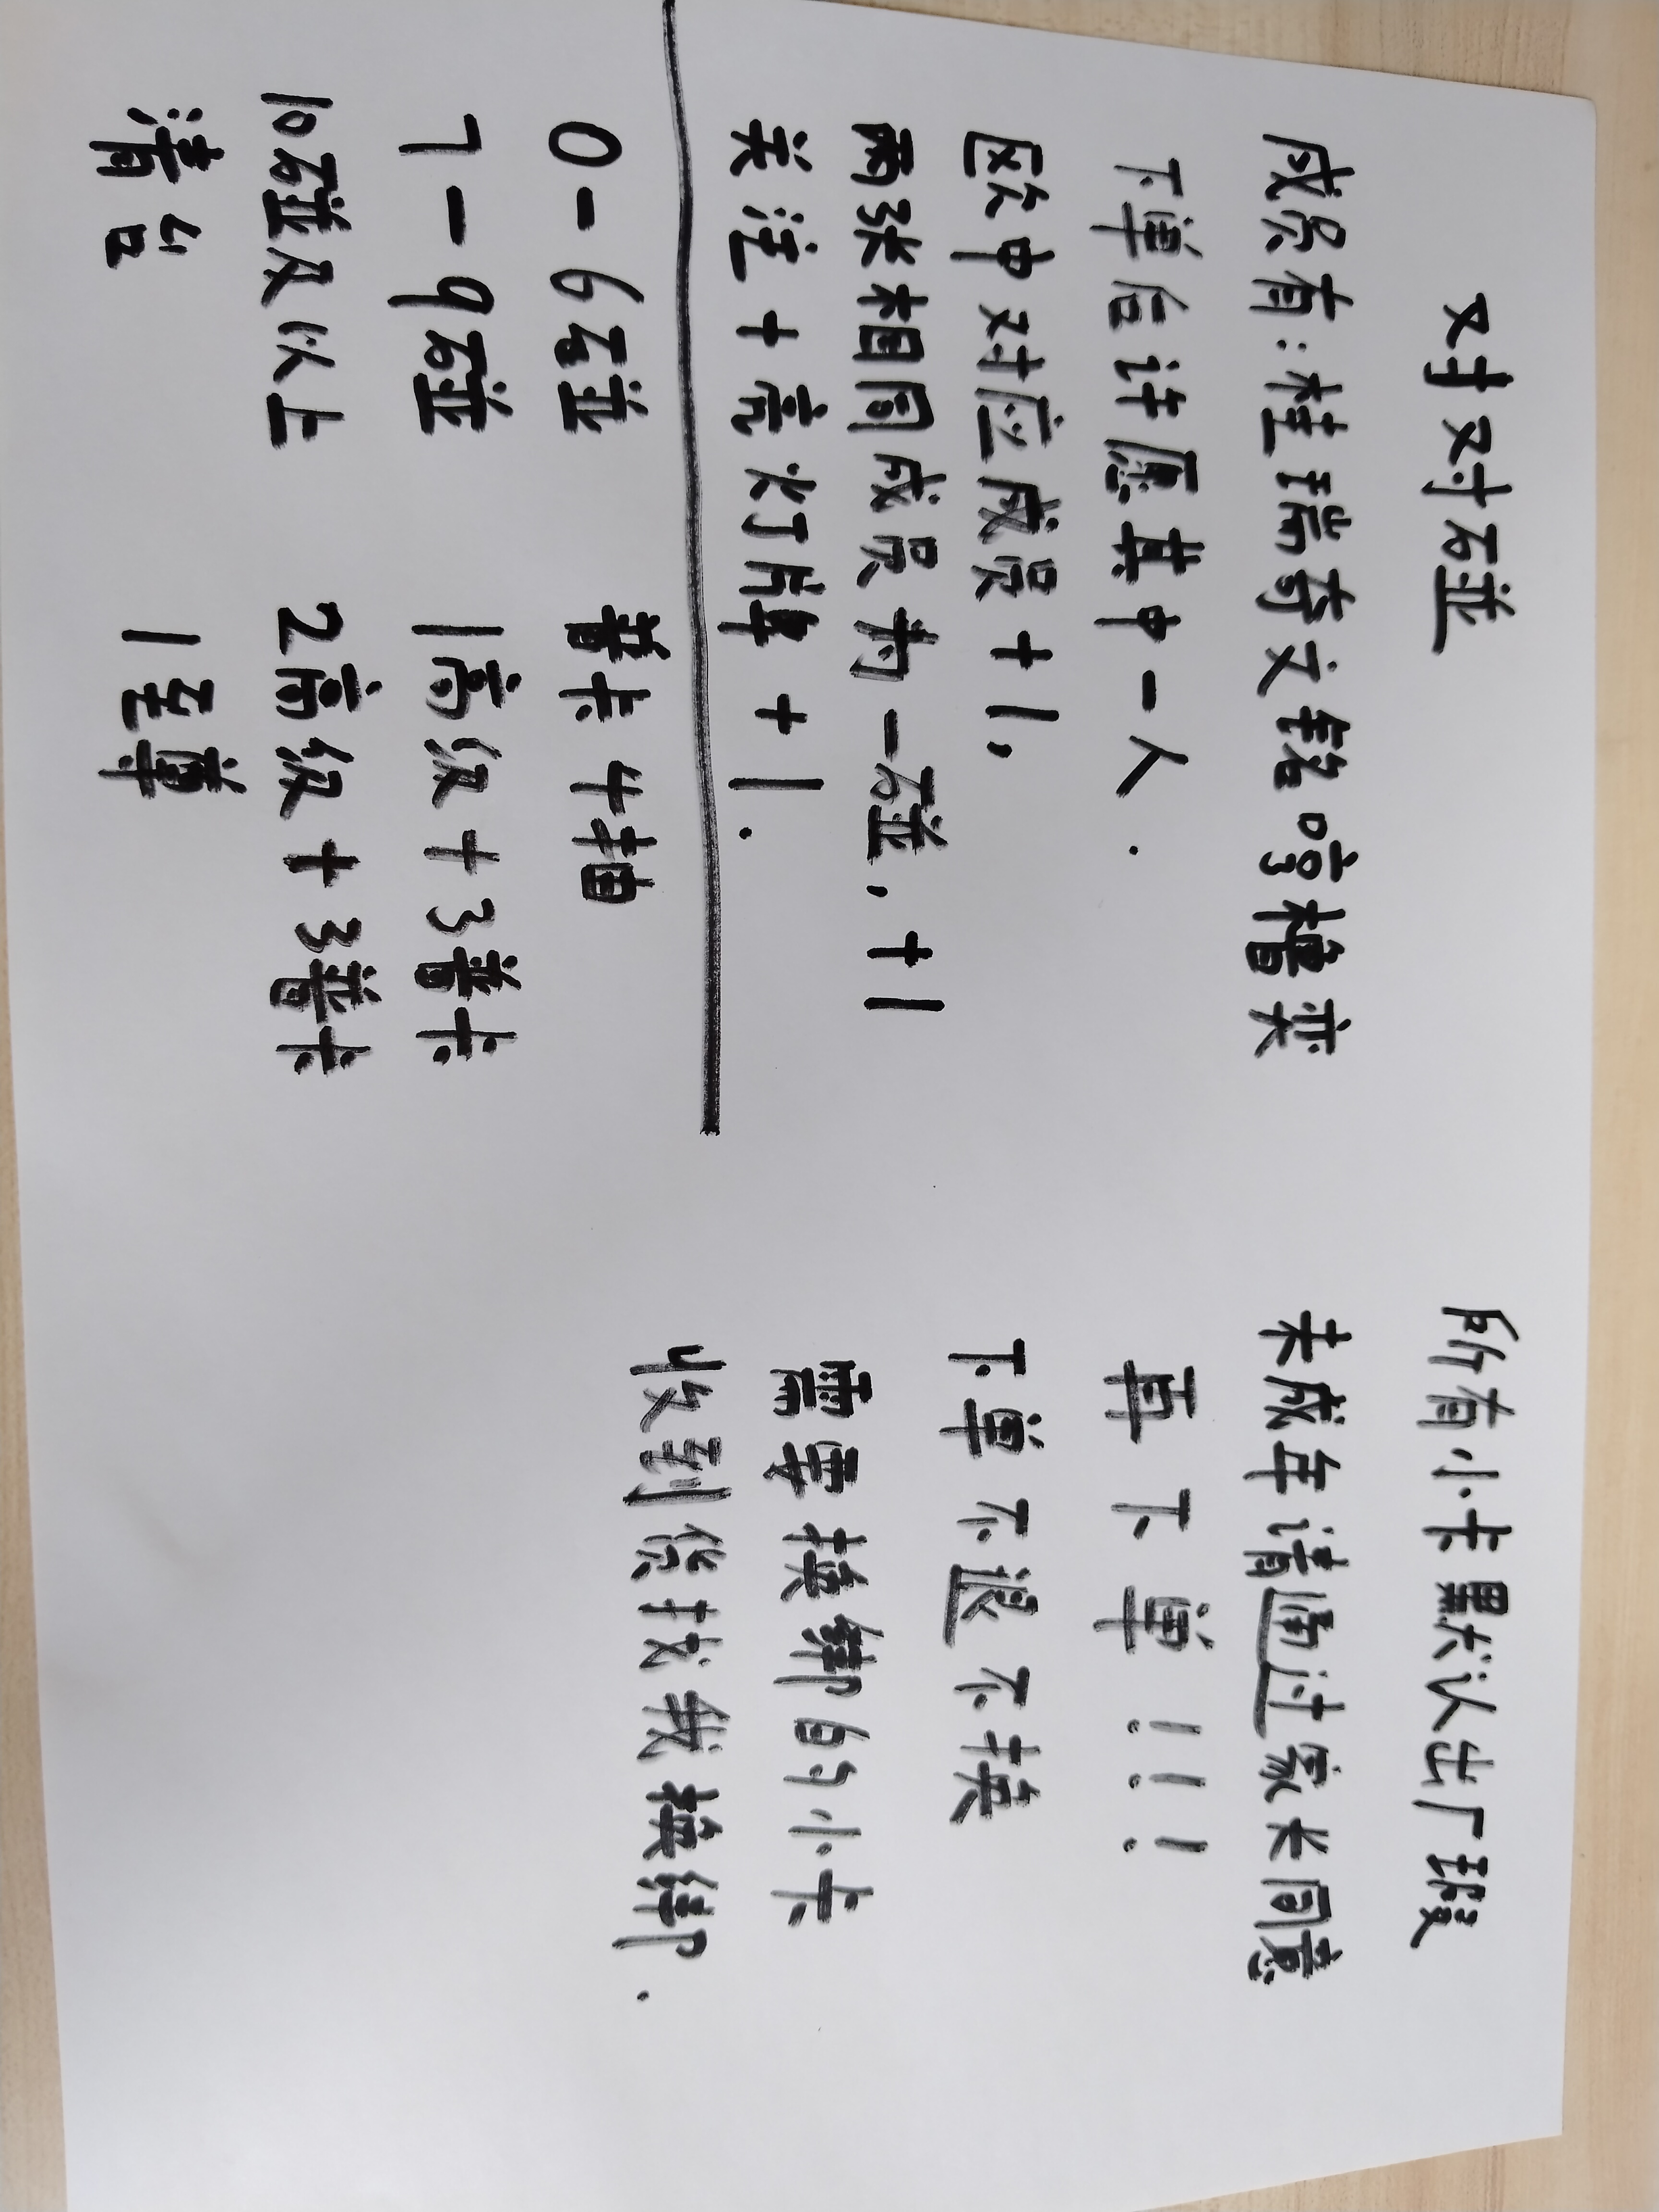 对对碰
成员有:桂瑞奇文铭哼橹奕
下单后许愿其中一人.
欧中对应成员+1,
两张相同成员为一碰,+1
关注+亮灯牌+1.
0-6碰 普卡4抽
7-9碰 1高级+3普卡
10碰及以上 2高级+3普卡
清台 1至尊
所有小卡默认出厂瑕
未成年请通过家长同意
再下单!!!
下单不退不换
需要换绑的小卡
收到货找我换绑.